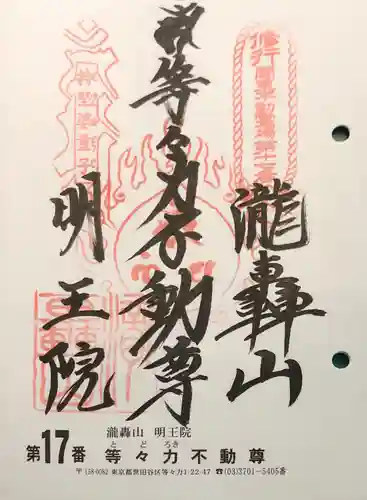 瀧轟山
等々力不動尊
明王院
瀧轟山 明王院
とどろき
第17番 等々力不動尊
〒158-0082 東京都世田谷区等々力1-22-47 ☎(03)3701-5405番